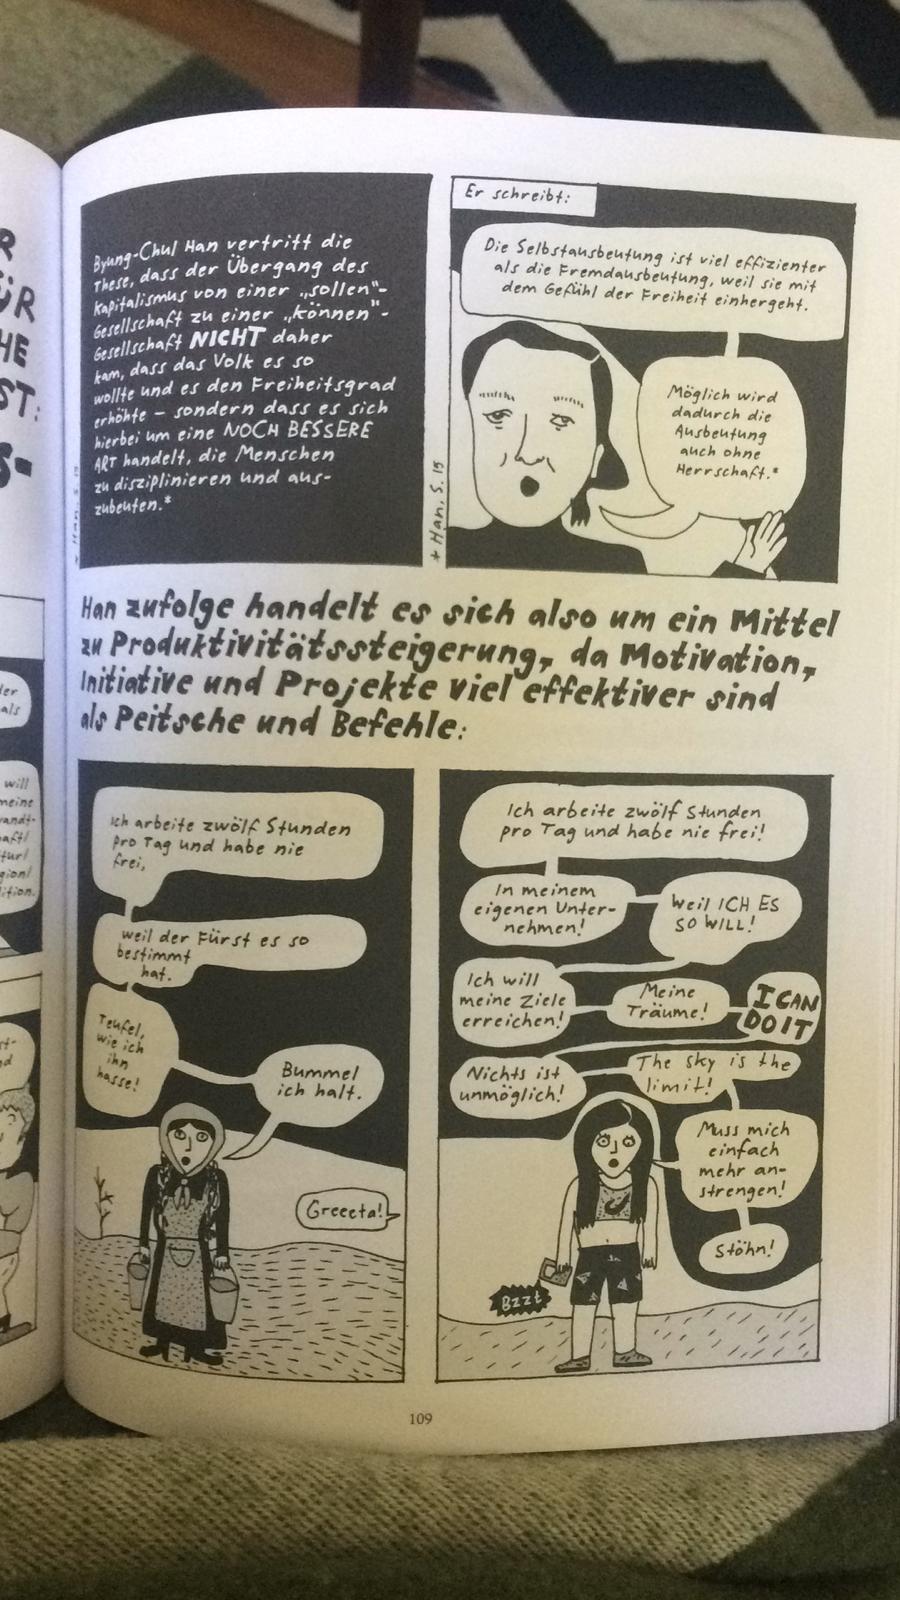 R
ÜR
HE
ST:
S-
der
als
will
meine
wandt-
haft/
tur/
gion/
lition.
st-
nd
Byung-Chul Han vertritt die
These, dass der Übergang des
Kapitalismus von einer „sollen"-
Gesellschaft zu einer „können"-
Gesellschaft NICHT daher
kam, dass das Volk es so
wollte und es den Freiheitsgrad
erhöhte – sondern dass es sich
hierbei um eine NOCH BESSERE
ART handelt, die Menschen
zu disziplinieren und aus-
zubeuten.*
* Han, S. 15
Er schreibt:
Die Selbstausbeutung ist viel effizienter
als die Fremdausbeutung, weil sie mit
dem Gefühl der Freiheit einhergeht.
Möglich wird
dadurch die
Ausbeutung
auch ohne
Herrschaft.*
* Han, S. 15
Han zufolge handelt es sich also um ein Mittel
zu Produktivitätssteigerung, da Motivation,
Initiative und Projekte viel effektiver sind
als Peitsche und Befehle:
Ich arbeite zwölf Stunden
pro Tag und habe nie
frei,
weil der Fürst es so
bestimmt
hat.
Teufel,
wie ich
ihn
hasse!
Bummel
ich halt.
Greeeta!
Ich arbeite zwölf Stunden
pro Tag und habe nie frei!
In meinem
eigenen Unter-
nehmen!
Weil ICH ES
SO WILL!
Ich will
meine Ziele
erreichen!
Meine
Träume!
I CAN
DO IT
Nichts ist
unmöglich!
The sky is the
limit!
Muss mich
einfach
mehr an-
strengen!
Stöhn!
Bzzt
109